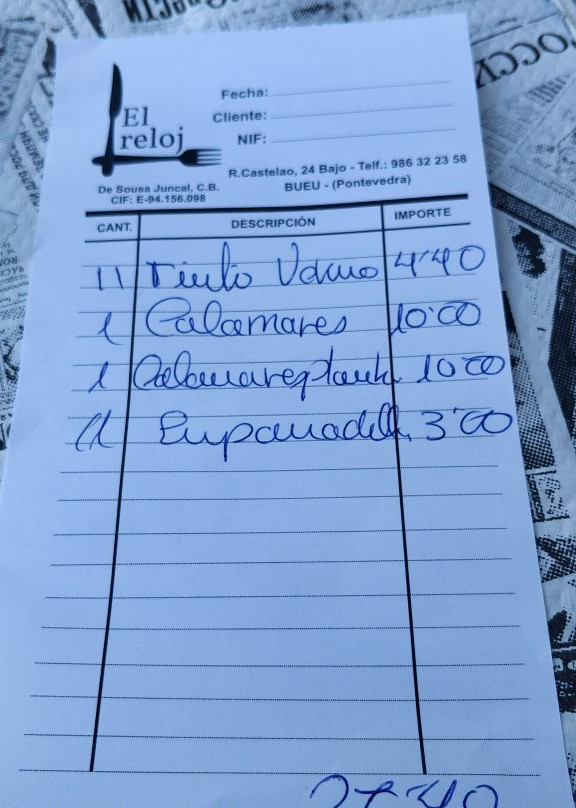 El
reloj
Fecha:
Cliente:
NIF:
R.Castelao, 24 Bajo - Telf.: 986 32 23 58
BUEU - (Pontevedra)
De Sousa Juncal, C.B.
CIF: E-94.156.098
CANT. DESCRIPCIÓN IMPORTE
11 Tinto Verano 4'40
1 Calamares 10'00
1 10'00
11 Empanadilla 3'00
27'40